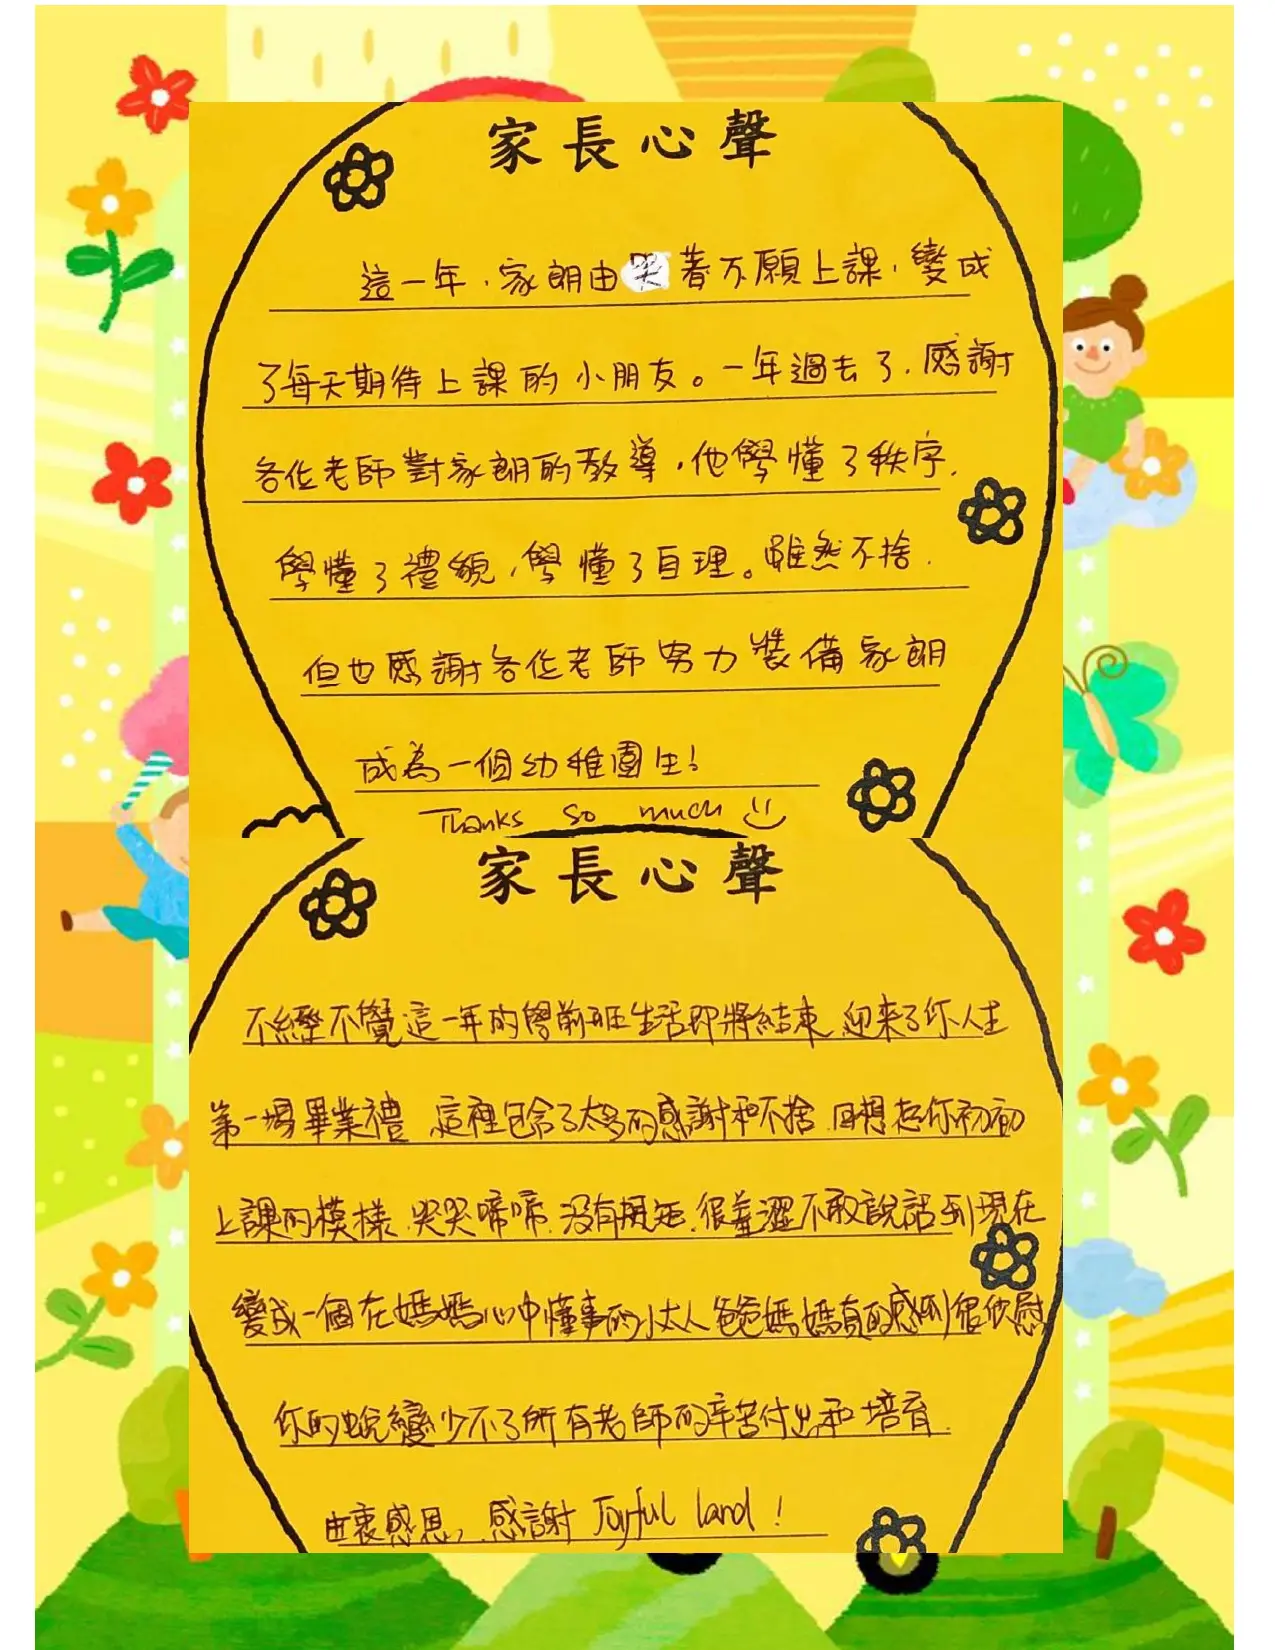 家長心聲
這一年，家朗由哭着不願上課，變成
了每天期待上課的小朋友。一年過去了，感謝
各位老師對家朗的教導，他學懂了秩序，
學懂了禮貌，學懂了自理。雖然不捨，
但也感謝各位老師努力裝備家朗
成為一個幼稚園生！
Thanks so much
家長心聲
不經不覺這一年的學前班生活即將結束，迎來了你人生
第一場畢業禮，這裡包含了太多的感謝和不捨，回想起你初初
上課的模樣，哭哭啼啼，沒有規矩，很羞澀不敢說話到現在
變成一個在媽媽心中懂事的小大人爸爸媽媽真的感到很欣慰
你的蛻變少不了所有老師的辛苦付出和培育，
由衷感恩，感謝 Joyful land！